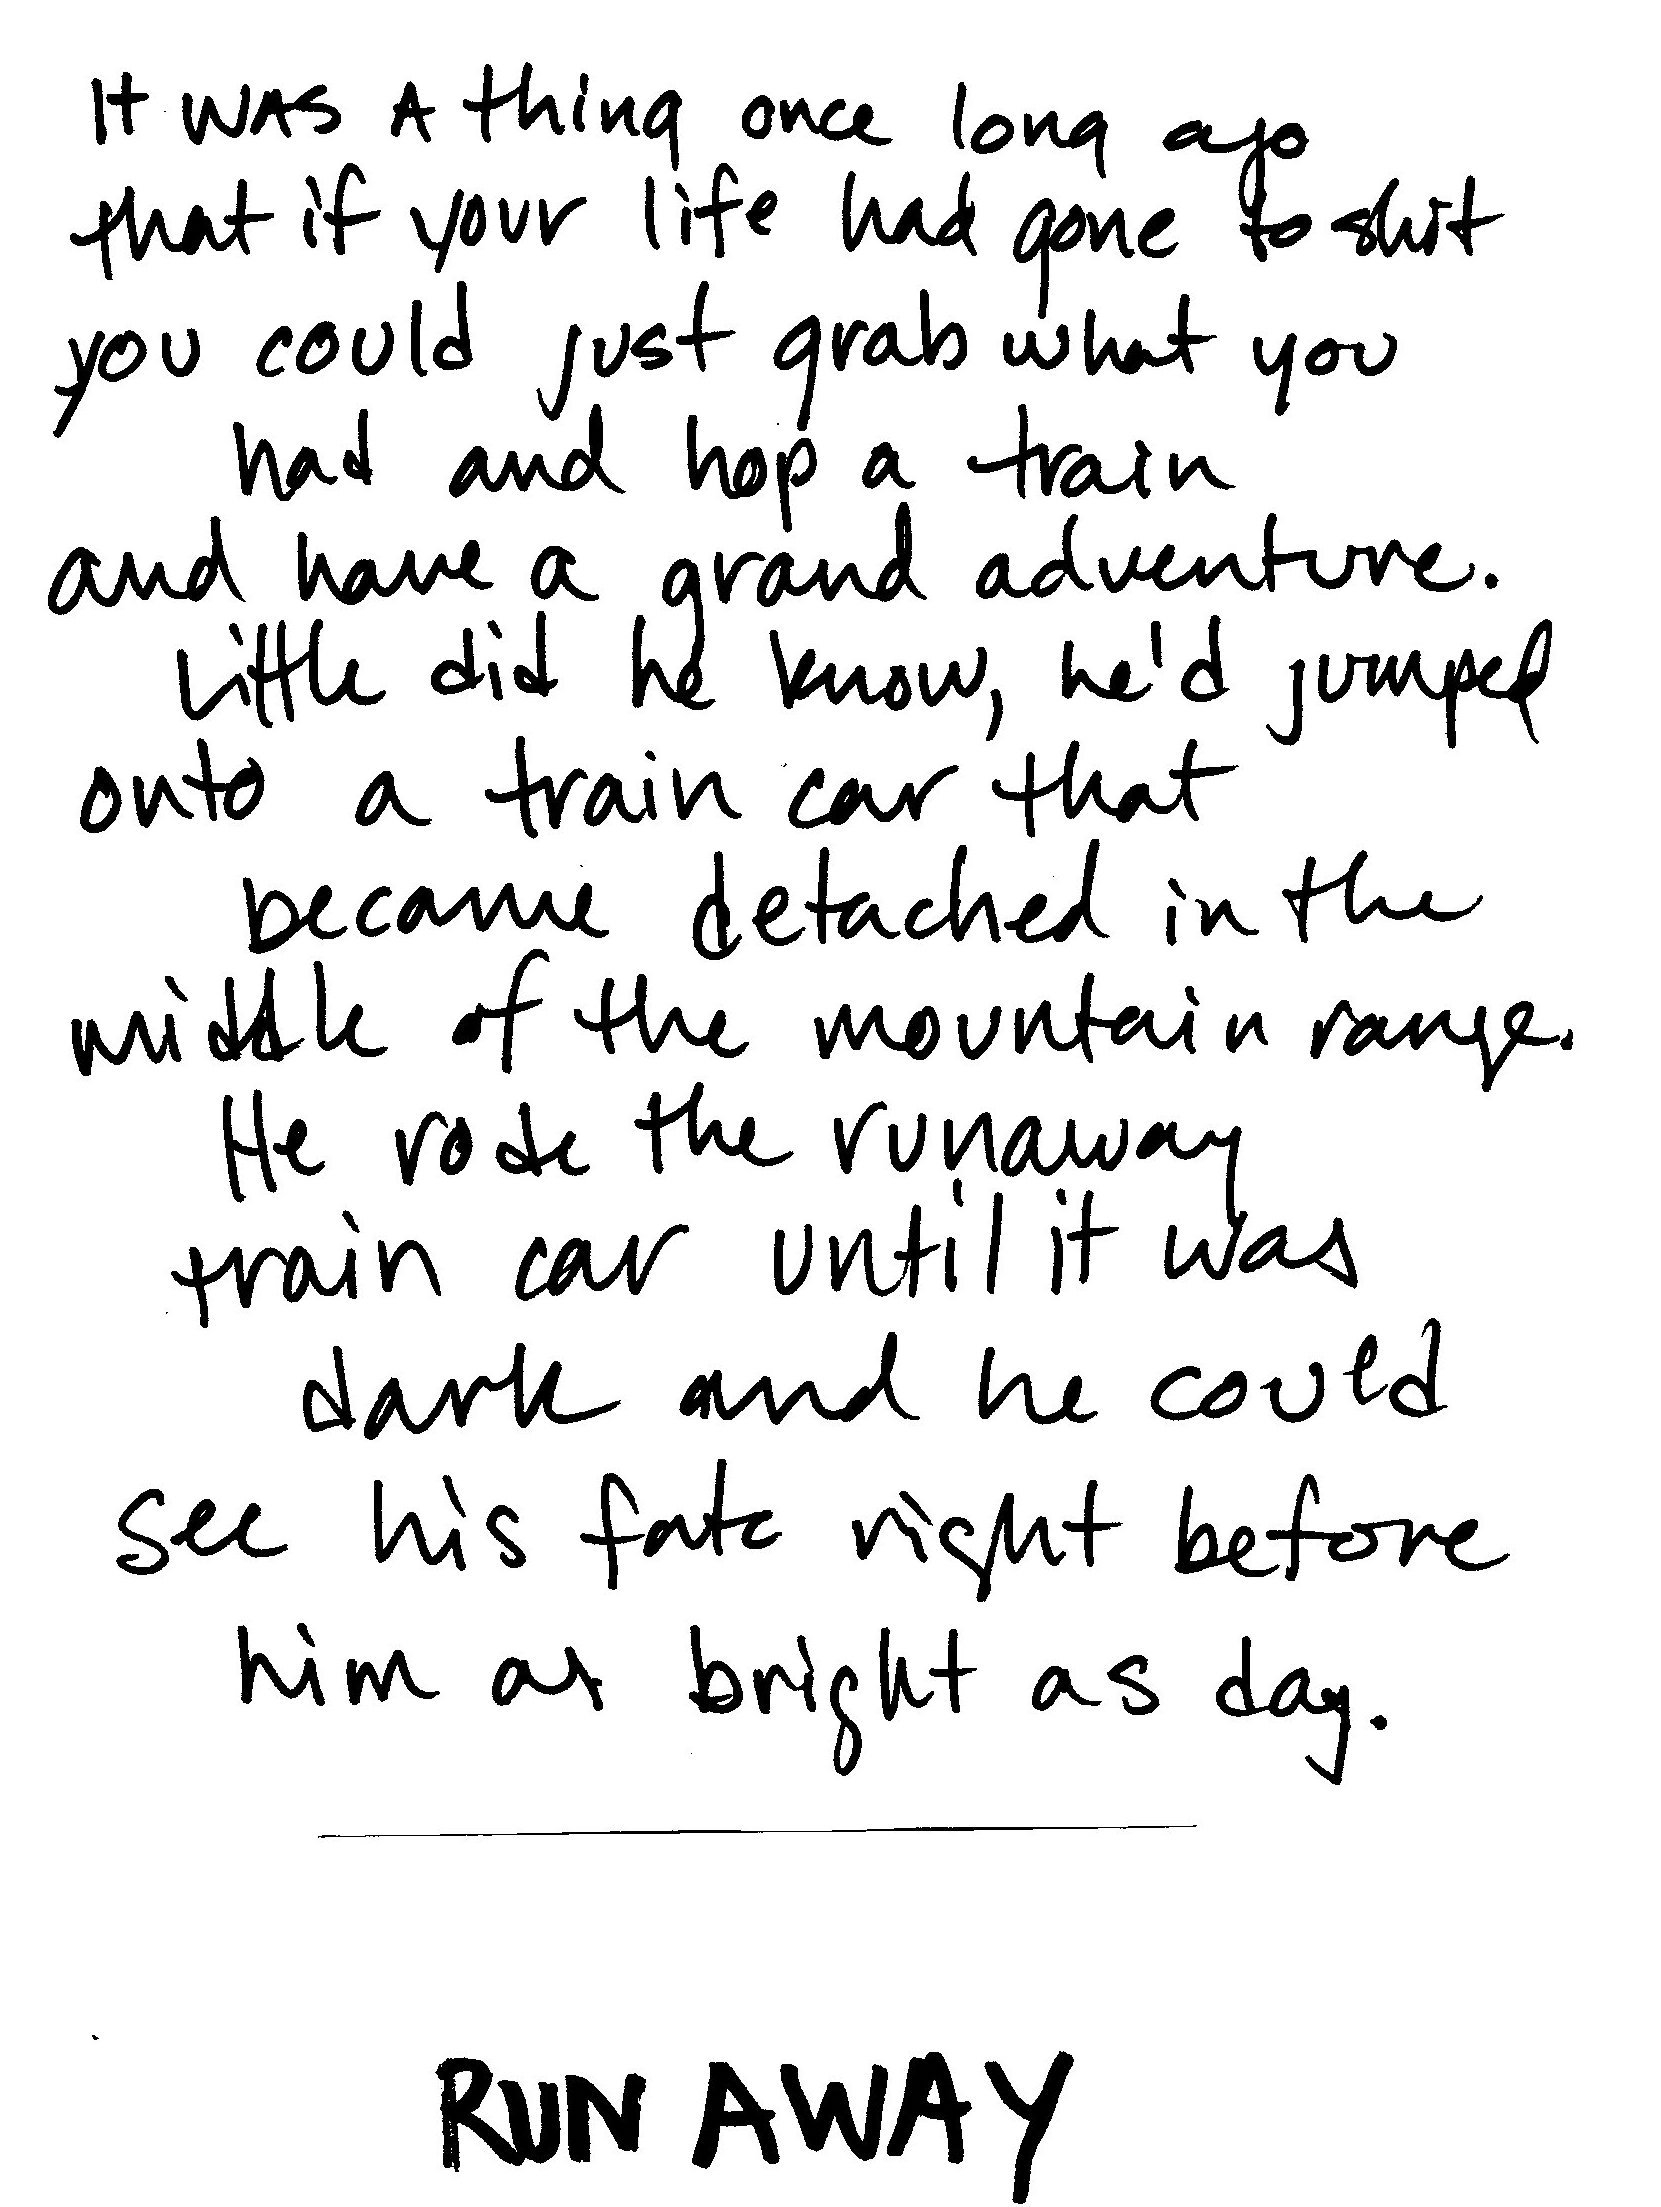 It WAS A thing once long ago
that if your life had gone to shit
you could just grab what you
had and hop a train
and have a grand adventure.
Little did he know, he'd jumped
onto a train car that
became detached in the
middle of the mountain range.
He rode the runaway
train car until it was
dark and he could
see his fate right before
him as bright as day.
RUN AWAY